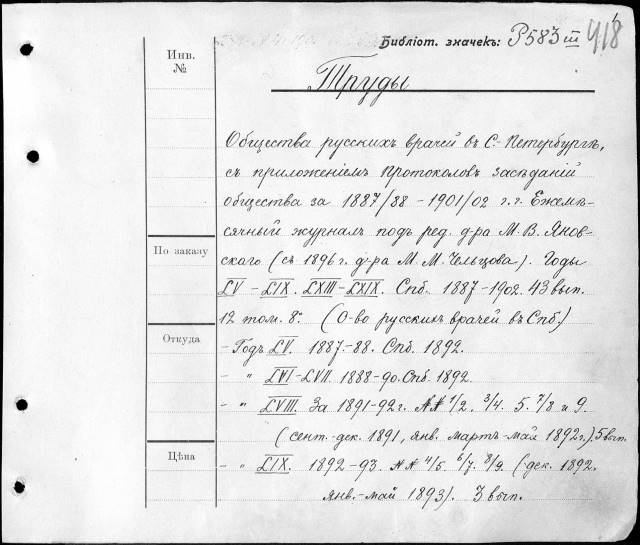 Библіот. значекъ: Р583 III 418
Инв.
№
Труды
Общества русскихъ врачей въ С.-Петербургѣ,
съ приложеніемъ протоколовъ засѣданій
общества за 1887/88 - 1901/02 г.г. Ежемѣ-
сячный журналъ подъ ред. д-ра М. В. Янов-
По заказу
скаго (съ 1896 г. д-ра М. М. Чельцова). Годы
LV - LIX. LXIII - LXIX. Спб. 1887-1902. 43 вып.
12 том. 8°. (О-во русскихъ врачей въ Спб.)
Откуда
- Годъ LV. 1887-88. Спб. 1892.
- " LVI - LVII. 1888-90. Спб. 1892.
- " LVIII. За 1891-92 г. №№ 1/2. 3/4. 5. 7/8 и 9.
(сент.-дек. 1891, янв. мартъ-май 1892 г.) 5 вып.
Цѣна
- " LIX. 1892-93. №№ 4/5. 6/7. 8/9. (дек. 1892.
янв.-май 1893). 3 вып.